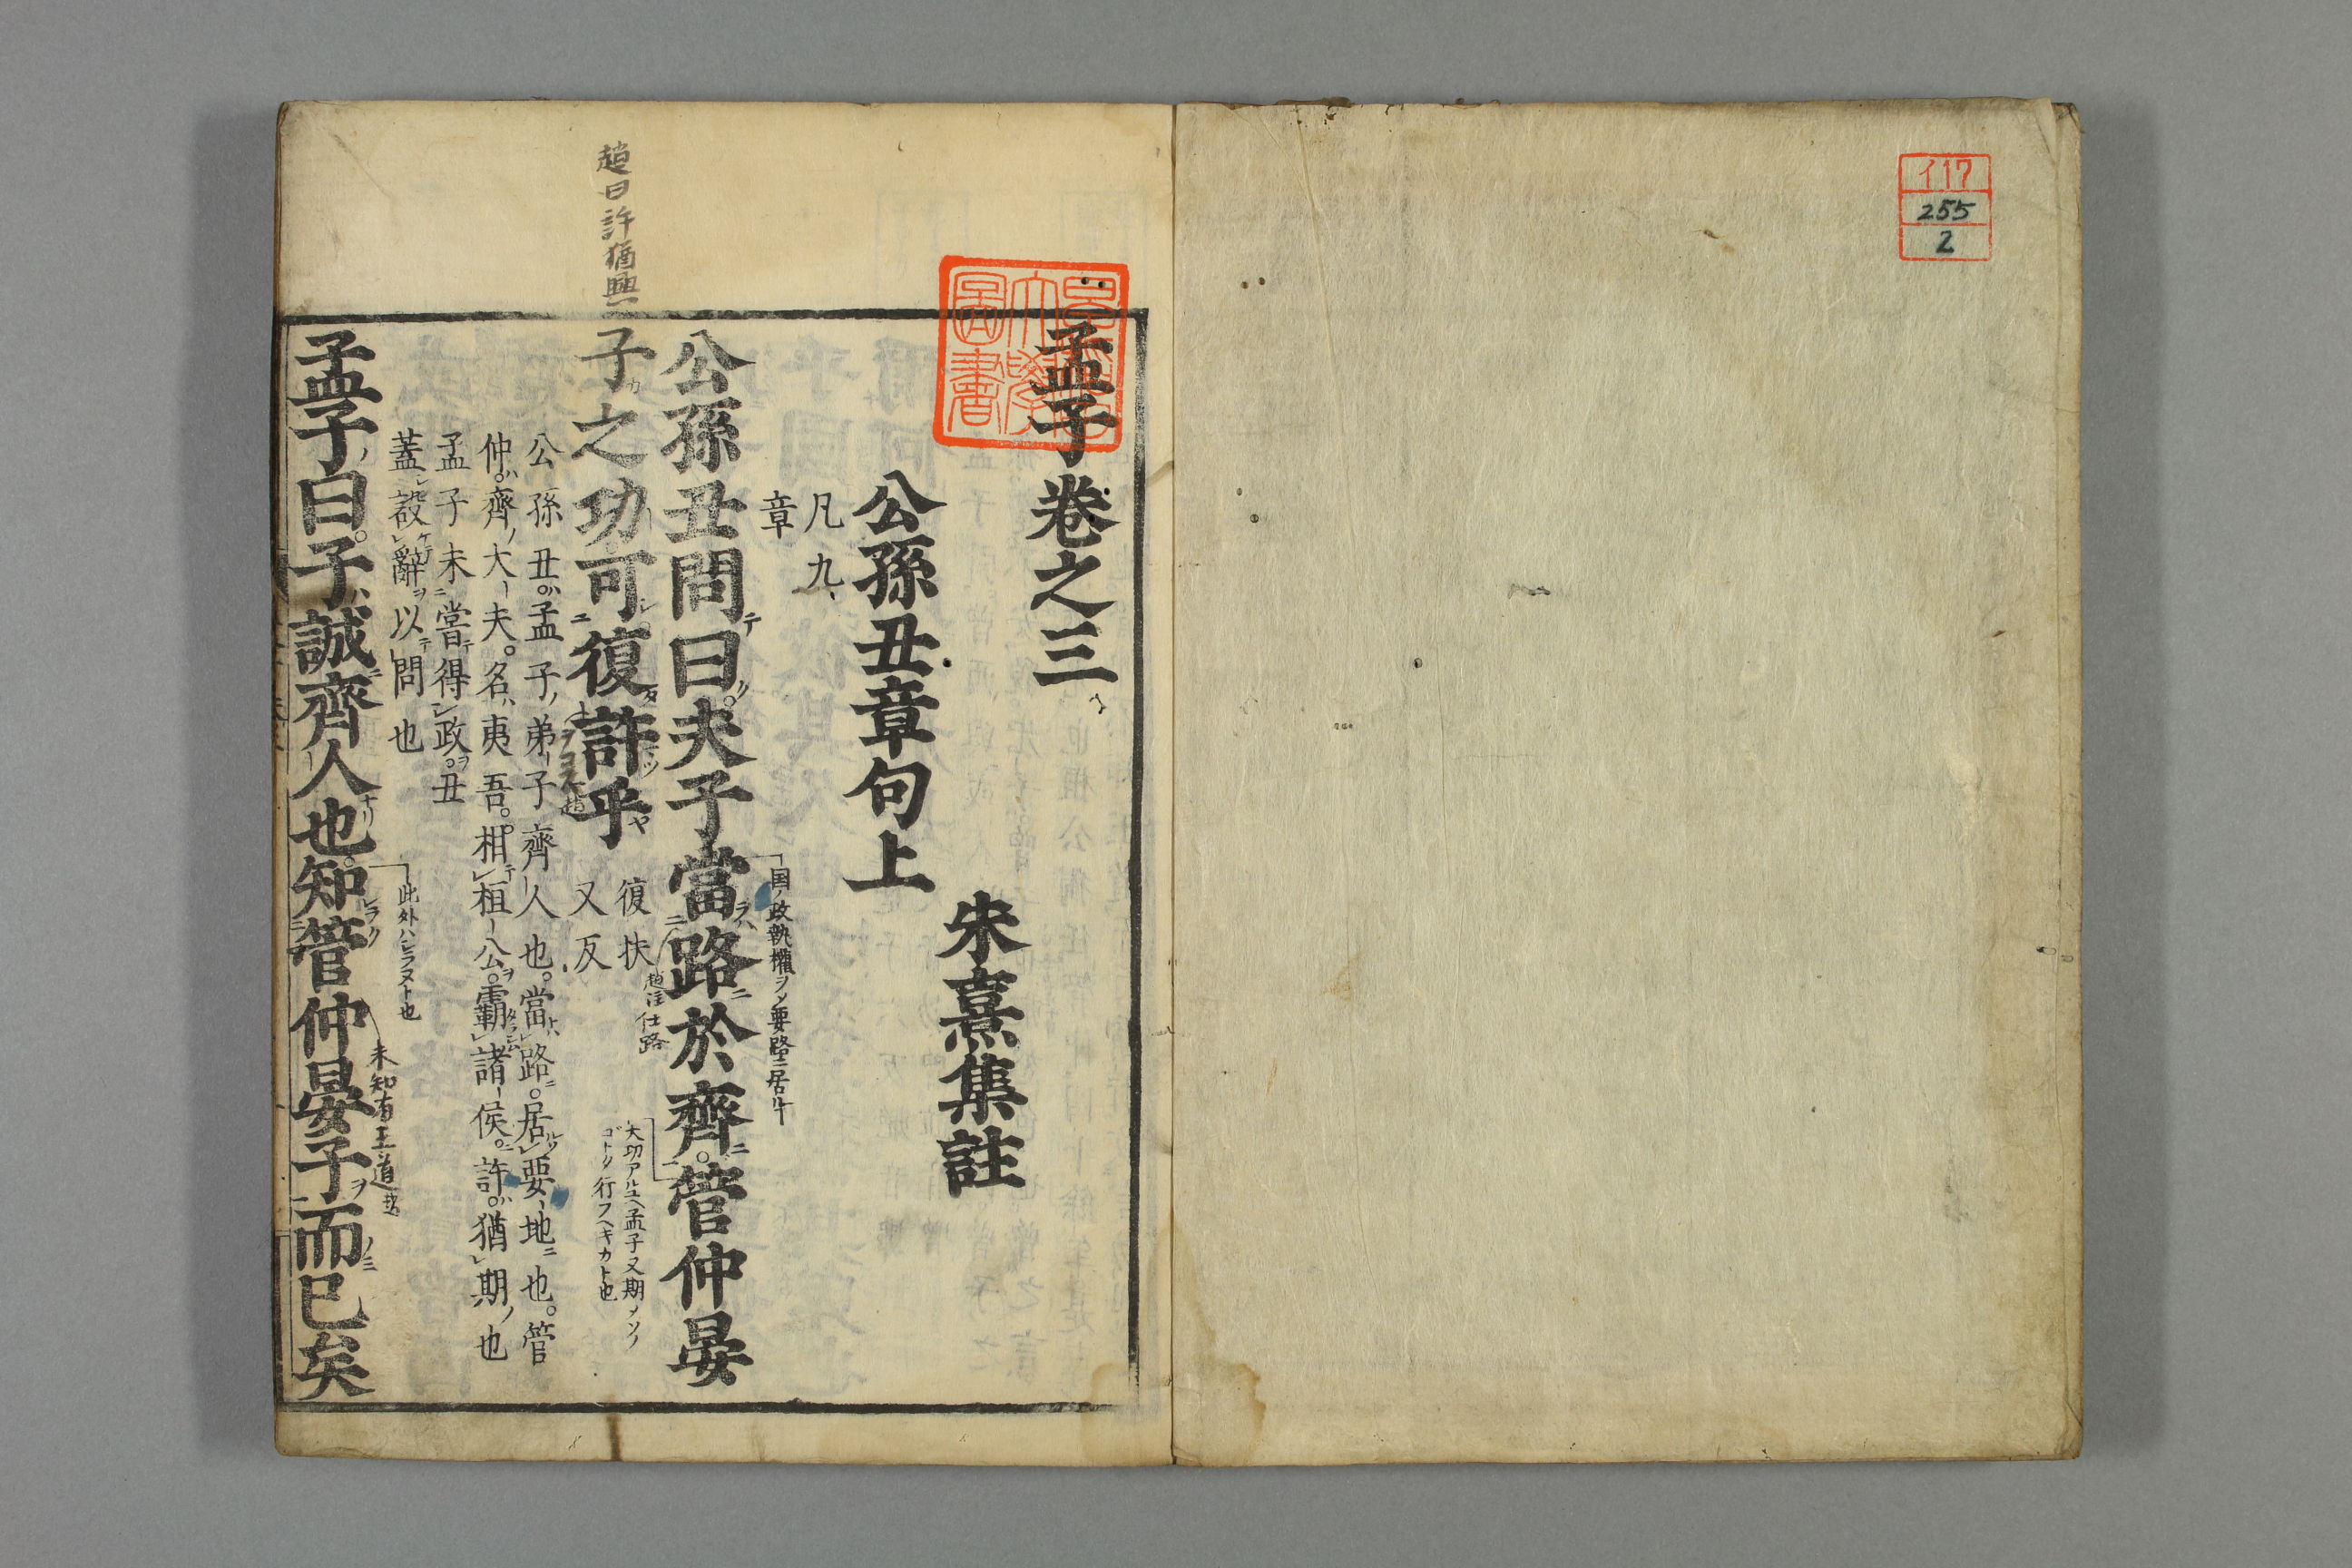 イ17
255
2
孟子卷之三
朱熹集註
公孫丑章句上
凡九
章
公孫丑問曰夫子當路於齊管仲晏
子之功可復許乎
復扶
又反
公孫丑孟子弟子齊人也當路居要地也管
仲齊大夫名夷吾相桓公霸諸侯許猶期也
孟子未嘗得政丑
蓋設辭以問也
孟子曰子誠齊人也知管仲晏子而已矣
趙曰許猶興
国ノ政執權ヲメ要路ニ居
趙注仕路
大功アルユヘ孟子又期メソノ
ゴトク行フヘキカト也
此外ハシラヌト也
未知有王道